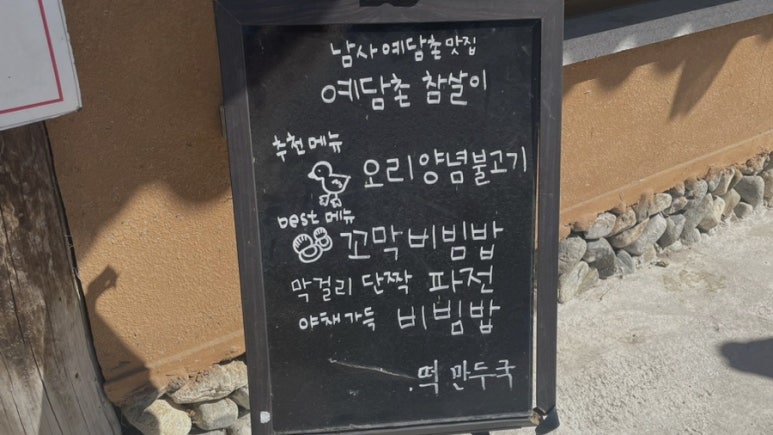 남사예담촌맛집
예담촌 참살이
추천메뉴
오리양념불고기
best 메뉴
꼬막비빔밥
막걸리 단짝 파전
야채가득 비빔밥
.떡 만두국